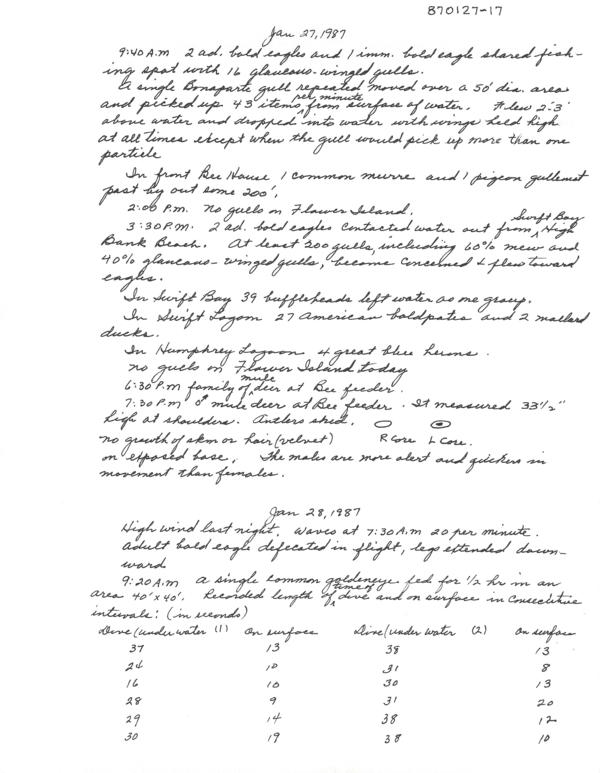 870127-17
Jan 27, 1987
9:40 A.M 2 ad. bald eagles and 1 imm. bald eagle shared fish-
ing spot with 16 glaucous-winged gulls.
A single Bonaparte gull repeated moved over a 50' dia. area
and picked up 43 items per minute from surface of water. Flew 2'-3'
above water and dropped into water with wings held high
at all times except when the gull would pick up more than one
particle
In front Bee House 1 common murre and 1 pigeon guillemot
past by out some 200'.
2:00 P.m. no gulls on Flower Island.
3:30 P.M. 2 ad. bald eagles contacted water out from Swift Bay High
Bank Beach. At least 200 gulls, including 60% mew and
40% glaucous-winged gulls, become concerned & flew toward
eagles.
In Swift Bay 39 buffleheads left water as one group.
In Swift Lagoon 27 American baldpates and 2 mallard
ducks.
In Humphrey Lagoon 4 great blue herons.
no gulls on Flower Island today
6:30 P.M family of mule deer at Bee feeder.
7:30 P.M ♂ mule deer at Bee feeder. It measured 33 1/2"
high at shoulders. Antlers shed.
no growth of skin or hair (velvet) R Core L Core.
on exposed base. The males are more alert and quickers in
movement than females.
Jan 28, 1987
High wind last night. Waves at 7:30 A.m 20 per minute.
Adult bald eagle defecated in flight, legs extended down-
ward
9:20 A.M A single common goldeneye fed for 1/2 hr in an
area 40'x40'. Recorded length of time of dive and on surface in consecutive
intervals: (in seconds)
Dive (under water (1) On surface Dive (under water (2) On surface
37 13 38 13
24 10 31 8
16 10 30 13
28 9 31 20
29 14 38 12
30 19 38 10